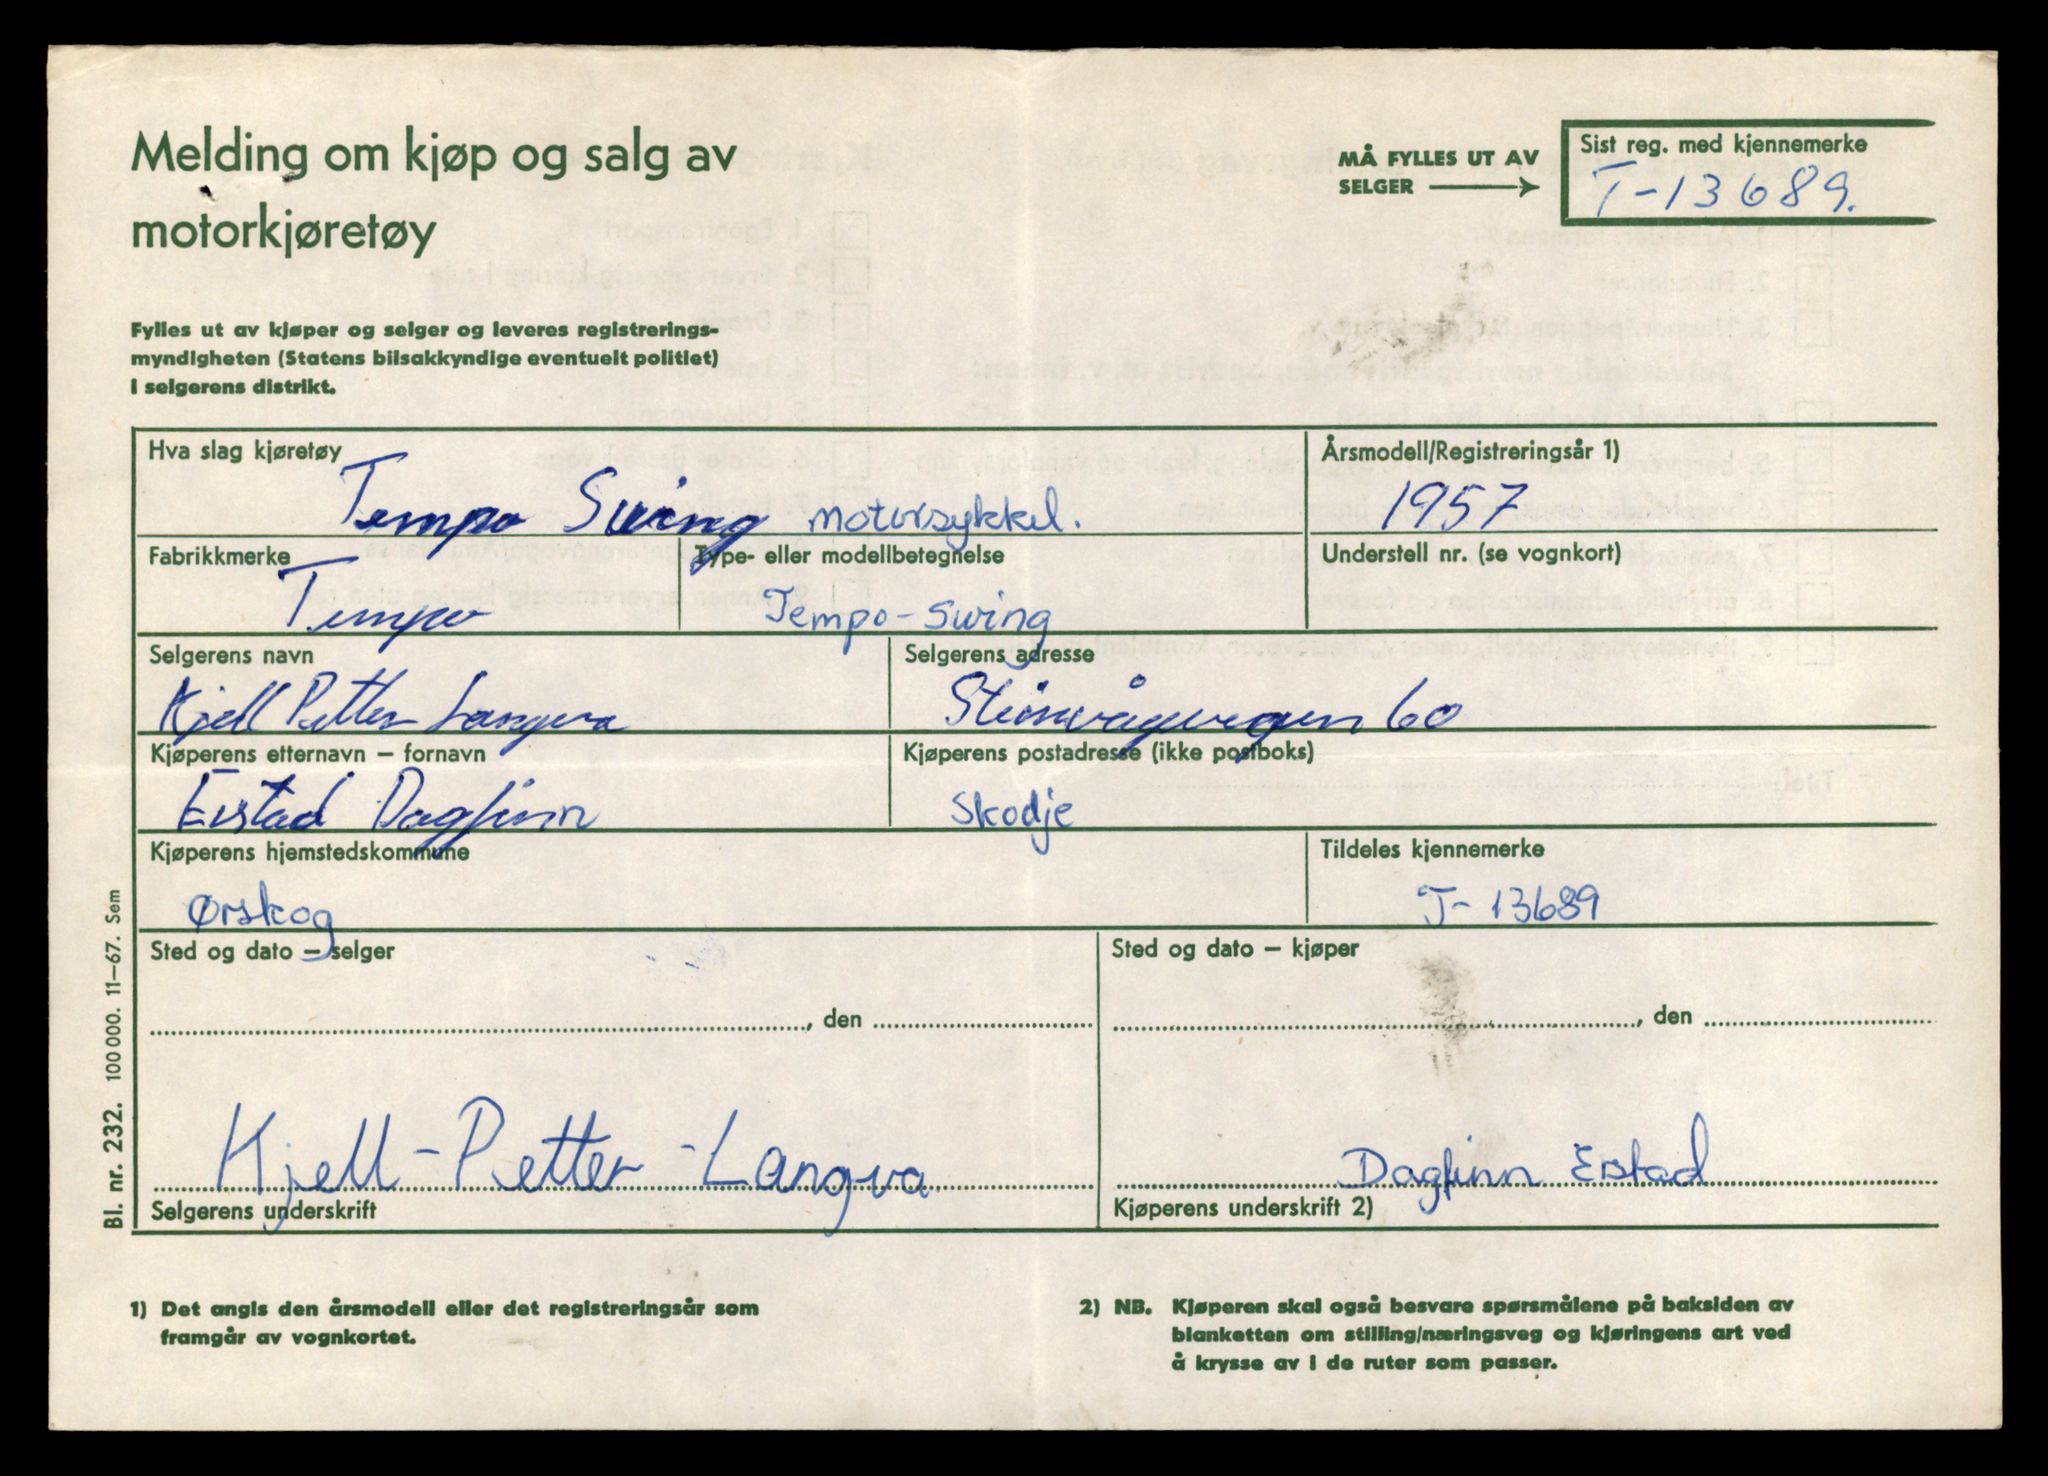 Melding om kjøp og salg av
motorkjøretøy
MÅ FYLLES UT AV
SELGER
Sist reg. med kjennemerke
T-13689.
Fylles ut av kjøper og selger og leveres registrerings-
myndigheten (Statens bilsakkyndige eventuelt politiet)
i selgerens distrikt.
Hva slag kjøretøy
Tempo Swing motorsykkel.
Årsmodell/Registreringsår 1)
1957
Fabrikkmerke
Tempo
Type- eller modellbetegnelse
Tempo-swing
Understell nr. (se vognkort)
Selgerens navn
Kjell Petter Langva
Selgerens adresse
Steinvågvegen 60
Kjøperens etternavn – fornavn
Eistad Dagfinn
Kjøperens postadresse (ikke postboks)
Skodje
Kjøperens hjemstedskommune
Ørskog
Tildeles kjennemerke
T- 13689
Sted og dato – selger
, den
Sted og dato – kjøper
, den
Kjell-Petter-Langva
Selgerens underskrift
Dagfinn Eistad
Kjøperens underskrift 2)
Bl. nr. 232. 100 000. 11–67. Sem
1) Det angis den årsmodell eller det registreringsår som
framgår av vognkortet.
2) NB. Kjøperen skal også besvare spørsmålene på baksiden av
blanketten om stilling/næringsveg og kjøringens art ved
å krysse av i de ruter som passer.